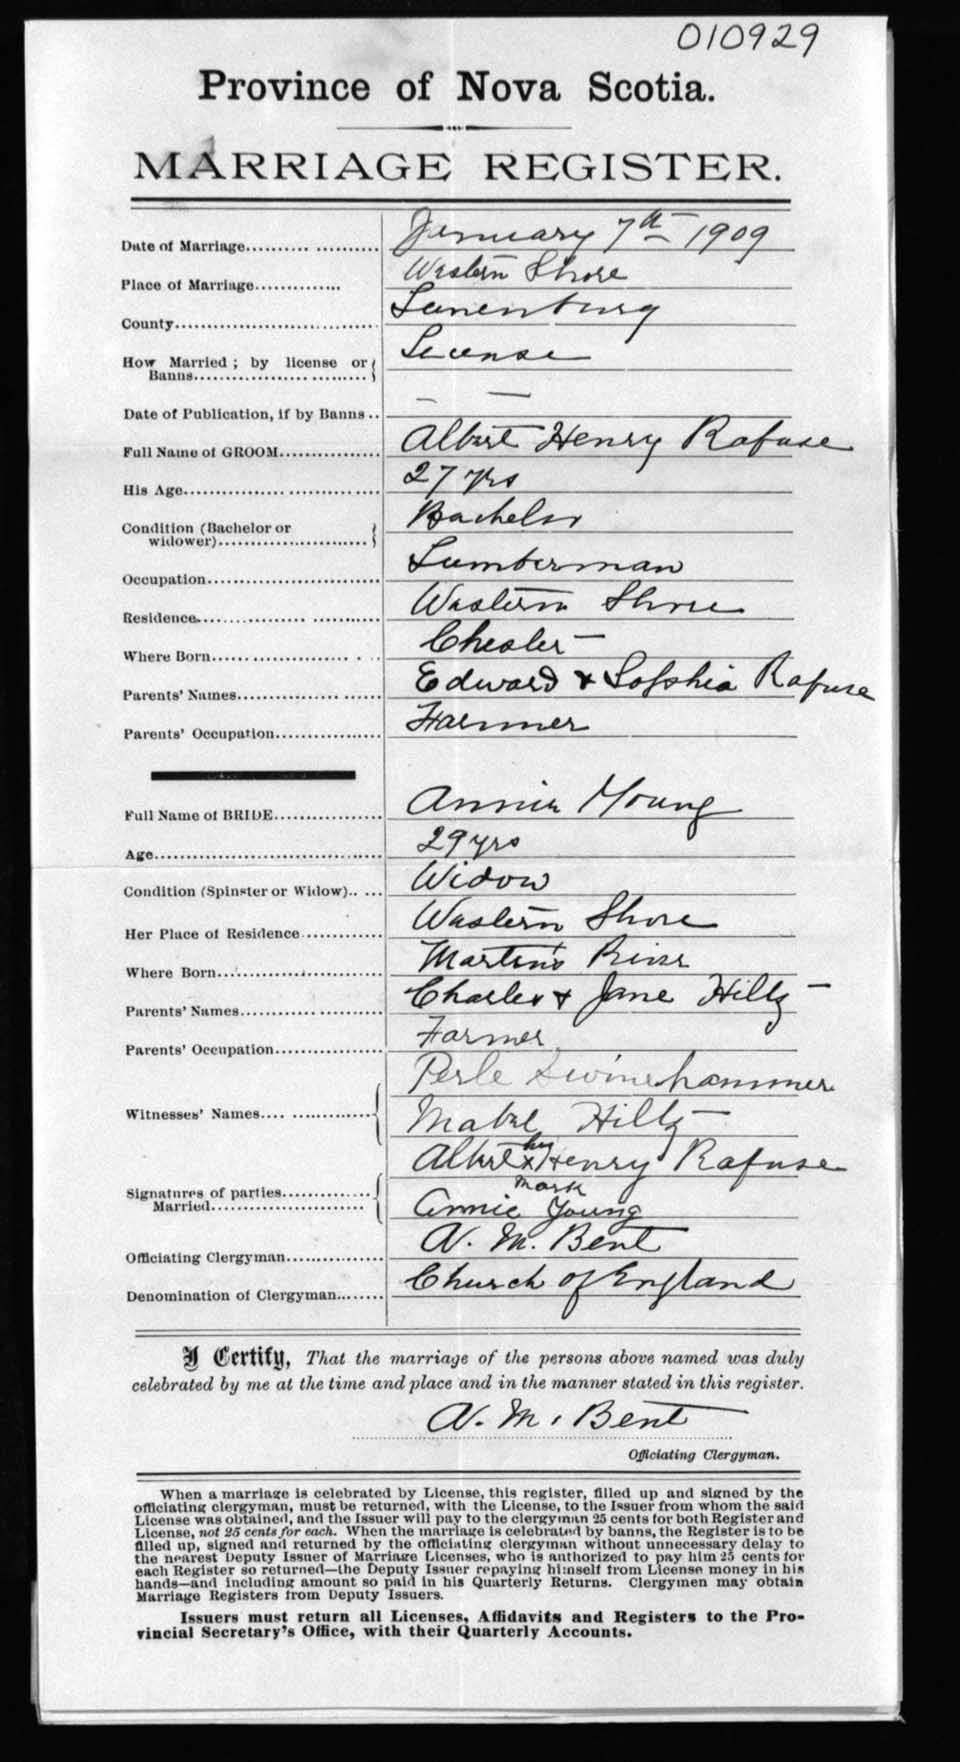 010929
Province of Nova Scotia.
MARRIAGE REGISTER.
Date of Marriage.................... January 7th 1909
Place of Marriage.............. Western Shore
County.............................. Lunenburg
How Married ; by license or
Banns.......................... License
Date of Publication, if by Banns .. — —
Full Name of GROOM................ Albert Henry Rafuse
His Age............................. 27 yrs
Condition (Bachelor or
widower)........................ Bachelor
Occupation.......................... Lumberman
Residence........................... Western Shore
Where Born....................... . . Chester
Parents' Names..................... Edward & Sophia Rafuse
Parents' Occupation................ Farmer
Full Name of BRIDE................. Annie Young
Age.................................. 29 yrs
Condition (Spinster or Widow).. .... Widow
Her Place of Residence............. Western Shore
Where Born.......................... Martins River
Parents' Names..................... Charles & Jane Hiltz
Parents' Occupation................ Farmer
Perle Swinehammer
Witnesses' Names.... ............. Mabel Hiltz
Albert his x Henry Rafuse
mark
Signatures of parties.............
Married........................ Annie Young
Officiating Clergyman.............. A. M. Bent
Denomination of Clergyman....... Church of England
I Certify, That the marriage of the persons above named was duly
celebrated by me at the time and place and in the manner stated in this register.
A. M. Bent
Officiating Clergyman.
When a marriage is celebrated by License, this register, filled up and signed by the
officiating clergyman, must be returned, with the License, to the Issuer from whom the said
License was obtained, and the Issuer will pay to the clergyman 25 cents for both Register and
License, not 25 cents for each. When the marriage is celebrated by banns, the Register is to be
filled up, signed and returned by the officiating clergyman without unnecessary delay to
the nearest Deputy Issuer of Marriage Licenses, who is authorized to pay him 25 cents for
each Register so returned—the Deputy Issuer repaying himself from License money in his
hands—and including amount so paid in his Quarterly Returns. Clergymen may obtain
Marriage Registers from Deputy Issuers.
Issuers must return all Licenses, Affidavits and Registers to the Pro-
vincial Secretary's Office, with their Quarterly Accounts.